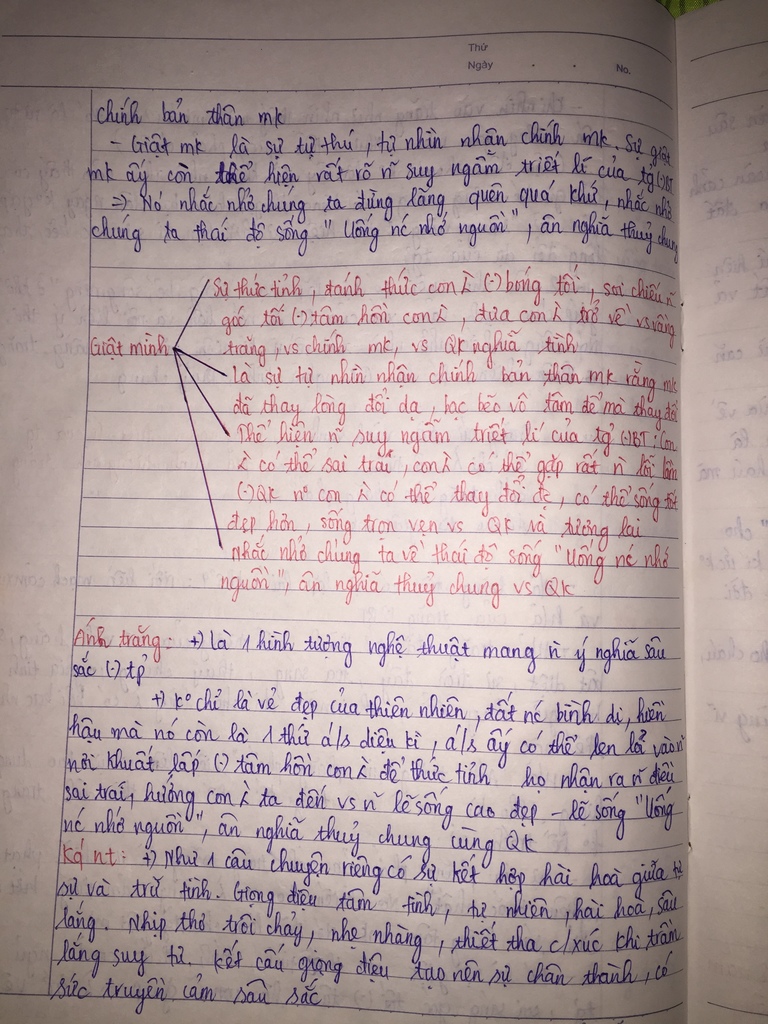 Thứ
Ngày . . No.
chính bản thân mk
- Giật mk là sự tự thú, tự nhìn nhận chính mk. Sự giật
mk ấy còn thể hiện rất rõ n~ suy ngẫm triết lí của tg (-) BT
=> Nó nhắc nhở chúng ta đừng lãng quên quá khứ, nhắc nhở
chúng ta thái độ sống "Uống nc nhớ nguồn", ân nghĩa thuỷ chung
Sự thức tỉnh, đánh thức con λ (-) bóng tối, soi chiếu n~
góc tối (-) tâm hồn con λ, đưa con λ trở về vs vầng
Giật mình trăng, vs chính mk, vs QK nghĩa tình
là sự tự nhìn nhận chính bản thân mk rằng mk
đã thay lòng đổi dạ, bạc bẽo vô tâm để mà thay đổi
Thể hiện n~ suy ngẫm triết lí của tg (-) BT: Con
λ có thể sai trái, con λ có thể gặp rất n` lỗi lầm
(-) QK n° con λ có thể thay đổi đc, có thể sống tốt
đẹp hơn, sống trọn vẹn vs QK và tương lai
Nhắc nhở chúng ta về thái độ sống "Uống nc nhớ
nguồn", ân nghĩa thuỷ chung vs QK
Ánh trăng: +) là 1 hình tượng nghệ thuật mang n` ý nghĩa sâu
sắc (-) tp
+) k° chỉ là vẻ đẹp của thiên nhiên, đất nc bình dị, hiền
hậu mà nó còn là 1 thứ á/s diệu kì, á/s ấy có thể len lỏi vào n~
nơi khuất lấp (-) tâm hồn con λ để thức tỉnh họ nhận ra n~ điều
sai trái, hướng con λ ta đến vs n~ lẽ sống cao đẹp - lẽ sống "Uống
nc nhớ nguồn", ân nghĩa thuỷ chung cùng QK
nt: +) Như 1 câu chuyện riêng có sự kết hợp hài hoà giữa tự
sự và trữ tình. Giọng điệu tâm tình, tự nhiên, hài hoà, sâu
lắng. Nhịp thơ trôi chảy, nhẹ nhàng, thiết tha c/xúc khi trầm
lắng suy tư. Kết cấu giọng điệu tạo nên sự chân thành, có
sức truyền cảm sâu sắc